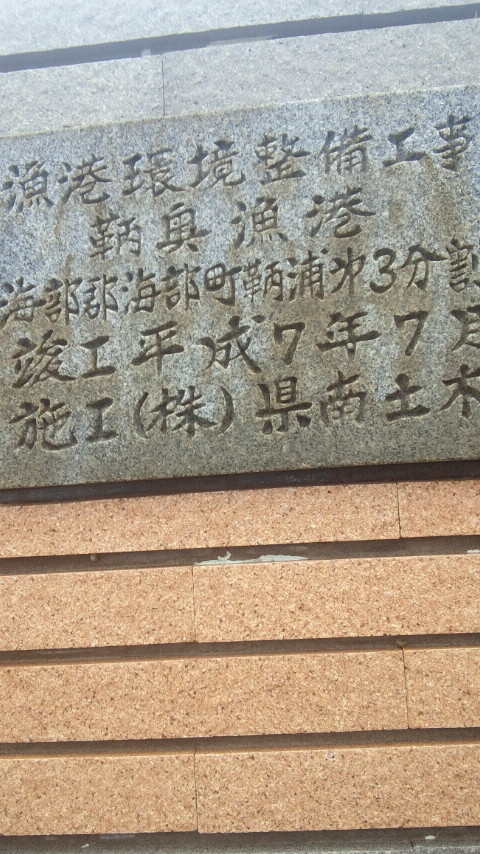 漁港環境整備工事
鞆奥漁港
海部郡海部町鞆浦㐧3分割
竣工平成7年7月
施工(株)県南土木